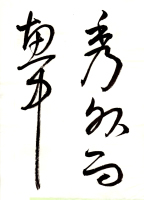 秀外而
惠中